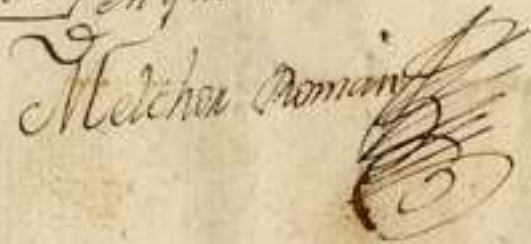 Melchor Roman